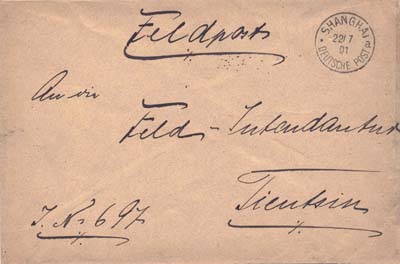 Feldpost
SHANGHAI a
22/7
01
DEUTSCHE POST
An die
Feld-Intendantur
Tientsin
J. No 697